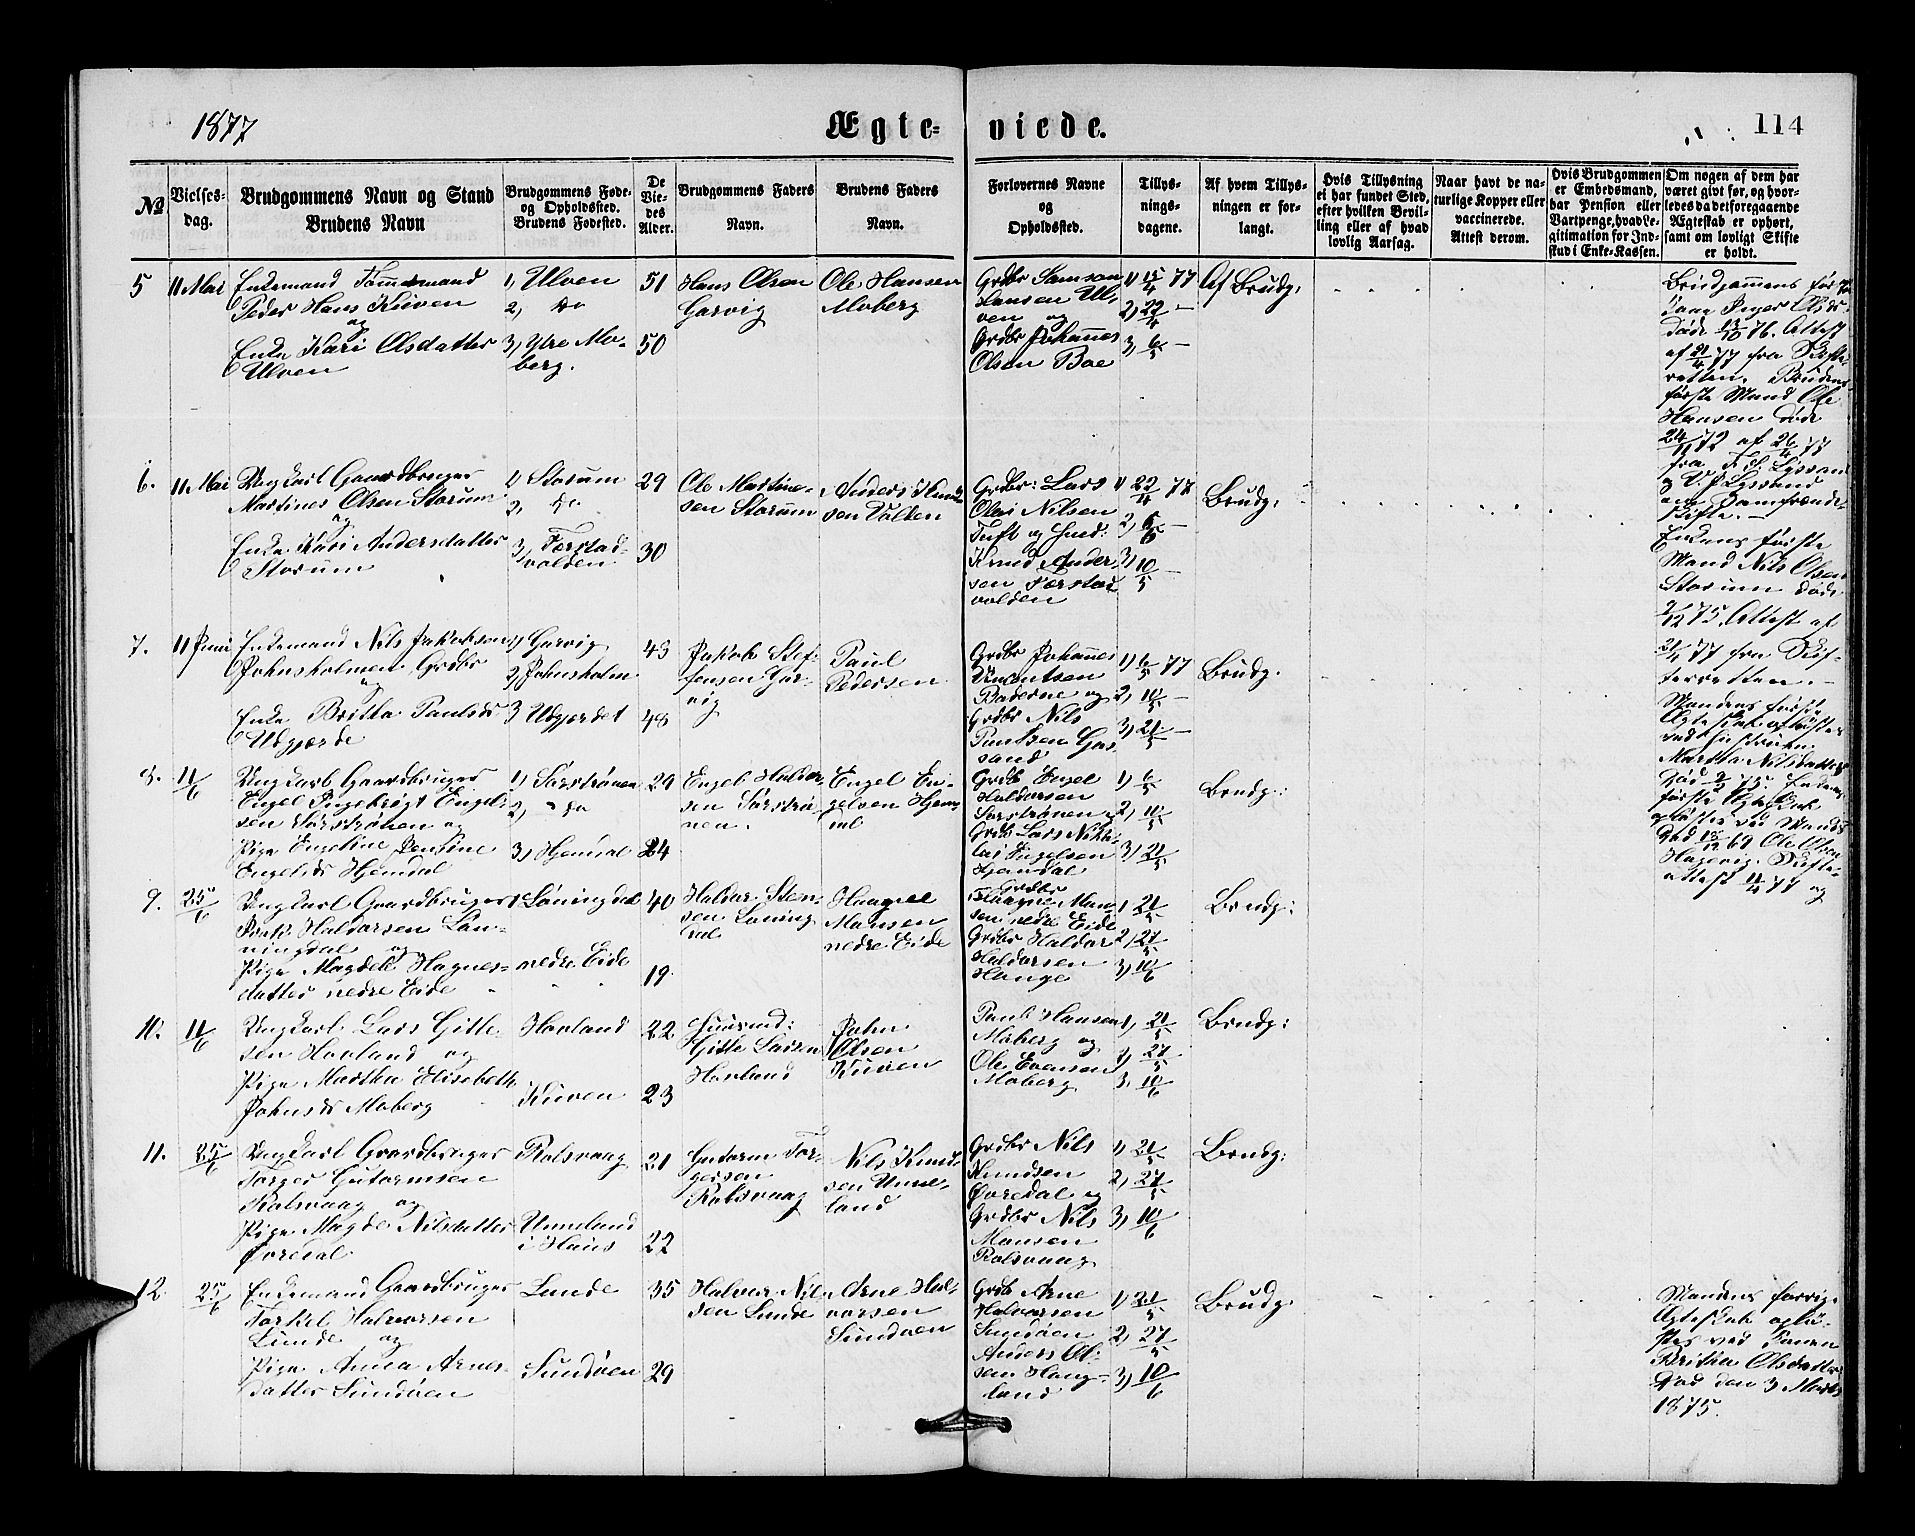 1877
Ægte-
viede.
114
No
Vielses-
dag.
Brudgommens Navn og Stand
Brudens Navn
Brudgommens Føde-
og Opholdssted.
Brudens Fødested.
De
Vie-
des
Alder.
Brudgommens Faders
Navn.
Brudens Faders
Navn.
Forlovernes Navne
og
Opholdssted.
Tillys-
nings-
dagene.
Af hvem Tillys-
ningen er for-
langt.
Hvis Tillysning
ei har fundet Sted,
efter hvilken Bevil-
ling eller af hvad
lovlig Aarsag.
Naar havt de na-
turlige Kopper eller
vaccinerede.
Attest derom.
Hvis Brudgommen
er Embedsmand,
har Pension eller
Vartpenge, hvad Le-
gitimation for Ind-
skud i Enke-Kassen.
Om nogen af dem har
været givt før, og hvor-
ledes da det foregaaende
Ægteskab er ophørt,
samt om lovligt Skifte
er holdt.
5
11 Mai
Enkemand Tømmermand
Peder Hans Kuven
og
Enke Kari Olsdatter
Ulven
1, Ulven
2, do
3, Ytre Mo-
berg.
51
50
Hans Olsen
Garvig
Ole Hansen
Moberg
Grdbr Samson
Hansen Ul-
ven og
Grdbr Johannes
Olsen Boe
1) 15/4 77
2) 22/4 —
3) 6/5 —
Af Brudg.
Brudgommens før
Kone Inger Olsdr
døde 13/10 76. Attest
af 21/4 77 fra Skifte-
retten. Brudens
første Mand Ole
Hansen døde
24/11 72 af 26/4 77
fra
6.
11 Mai
Ungkarl Gaardbruger
Martines Olsen Storum
og
Enke Kari Andersdatter
Storum
1) Storum
2, do
3, Førstad-
volden
29
30
Ole Martine-
sen Storum
Anders Knud-
sen
Grdbr: Lars
Olai Nilsen
Tuft og Huus:
Knud Ander-
sen Førstad
volden
1) 22/4 77
2, 6/5 —
3) 10/5 —
Brudg.
Enkens første
Mand Nils Olsen
Storum døde
75. Attest af
77 fra Skif-
teretten. —
7.
11 Juni
Enkemand Nils Jakobsen
Johnsholmen Grdbr
og
Enke Britha Paulsdr
Udgjerde
1) Garvig
2) Johnsholm
3 Udgjerdet
43
48
Jakob Stef-
fensen Gar-
vig
Paul
Pedersen
Grdbr Johannes
Vincentsen
Baderne og
Grdbr Nils
Paulsen Gas-
sand
1) 6/5 77
2, 10/5 —
3) 21/5 —
Brudg.
Mandens første
Ægteskab opløstes
ved Hustruen
Martha Nilsdatters
Død 75. Enkens
første Ægteskab
opløstes ved Mandens
Død 69 Ole Olsen
Hagevig. Skifte-
attest 11/4 77 og
8.
11/6
Ungkarl Gaardbruger
Engel Ingebrigt Engel-
sen Sørstrønen og
Pige Engeline Jensine
Engelsdr Hjemdal
1) Sørstrønen
2, do
3, Hjemdal
29
24
Engel Haldor-
sen Sørstrø-
nen.
Engel En-
gelsen Hjem-
dal
Grdb Engel
Haldorsen
Sørstrønen og
Grdb Lars Niko-
lai Engelsen
Hjemdal
1) 6/5
2, 10/5
3, 21/5
Brudg:
9.
25/6
Ungkarl Gaardbruger
Haldorsen Løn-
ningdal og
Pige Magdeli Hagnes-
datter nedre Eide
Løningdal
nedre Eide
40
19.
Haldor Sten-
sen Løning-
dal
Haagne
Monsen
nedre Eide
Grdbr
Haagne Mon-
sen nedre Eide
Grdbr Haldor
Haldorsen
Hauge
1 21/5
2) 27/5
3) 10/6
Brudg:
10.
11/6
Ungkarl Lars Gitle-
sen Hovland og
Pige Martha Elisabeth
Johnsdr Moberg
Hovland
Kuven
22
23
Huusmd:
Gitle Larsen
Hovland
John
Olsen
Kuven
Paul Hansen
Moberg og
Ole Evensen
Moberg
1, 21/5
27/5
3, 10/6
Brudg:
11.
25/6
Ungkarl Gaardbruger
Torger Gutormsen
Rolsvaag og
Pige Magde Nilsdatter
Øvredal
Rolsvaag
Unneland
i Haus
21
22
Gutorm Tor-
gersen
Rolsvaag
Nils Knud-
sen Unne-
land
Grdbr Nils
Knudsen
Øvredal og
Grdbr Nils
Monsen
Rolsvaag
1) 21/5
2, 27/5
3, 10/6
Brudg:
12
25/6
Enkemand Gaardbruger
Torkel Halvorsen
Lunde og
Pige Anna Arnes-
datter Sundøen
Lunde
Sundøen
35
29
Halvor Nil-
sen Lunde
Arne Hal-
vorsen
Sundøen
Grdb Arne
Halvorsen
Sundøen
Anders Ol-
sen Haug-
land
1) 21/5
2, 27/5
3) 10/6
Brudg.
Mandens forrige
Ægteskab oplø-
stes ved Konen
Britha Olsdatters
Død den 3 Marts
1875.